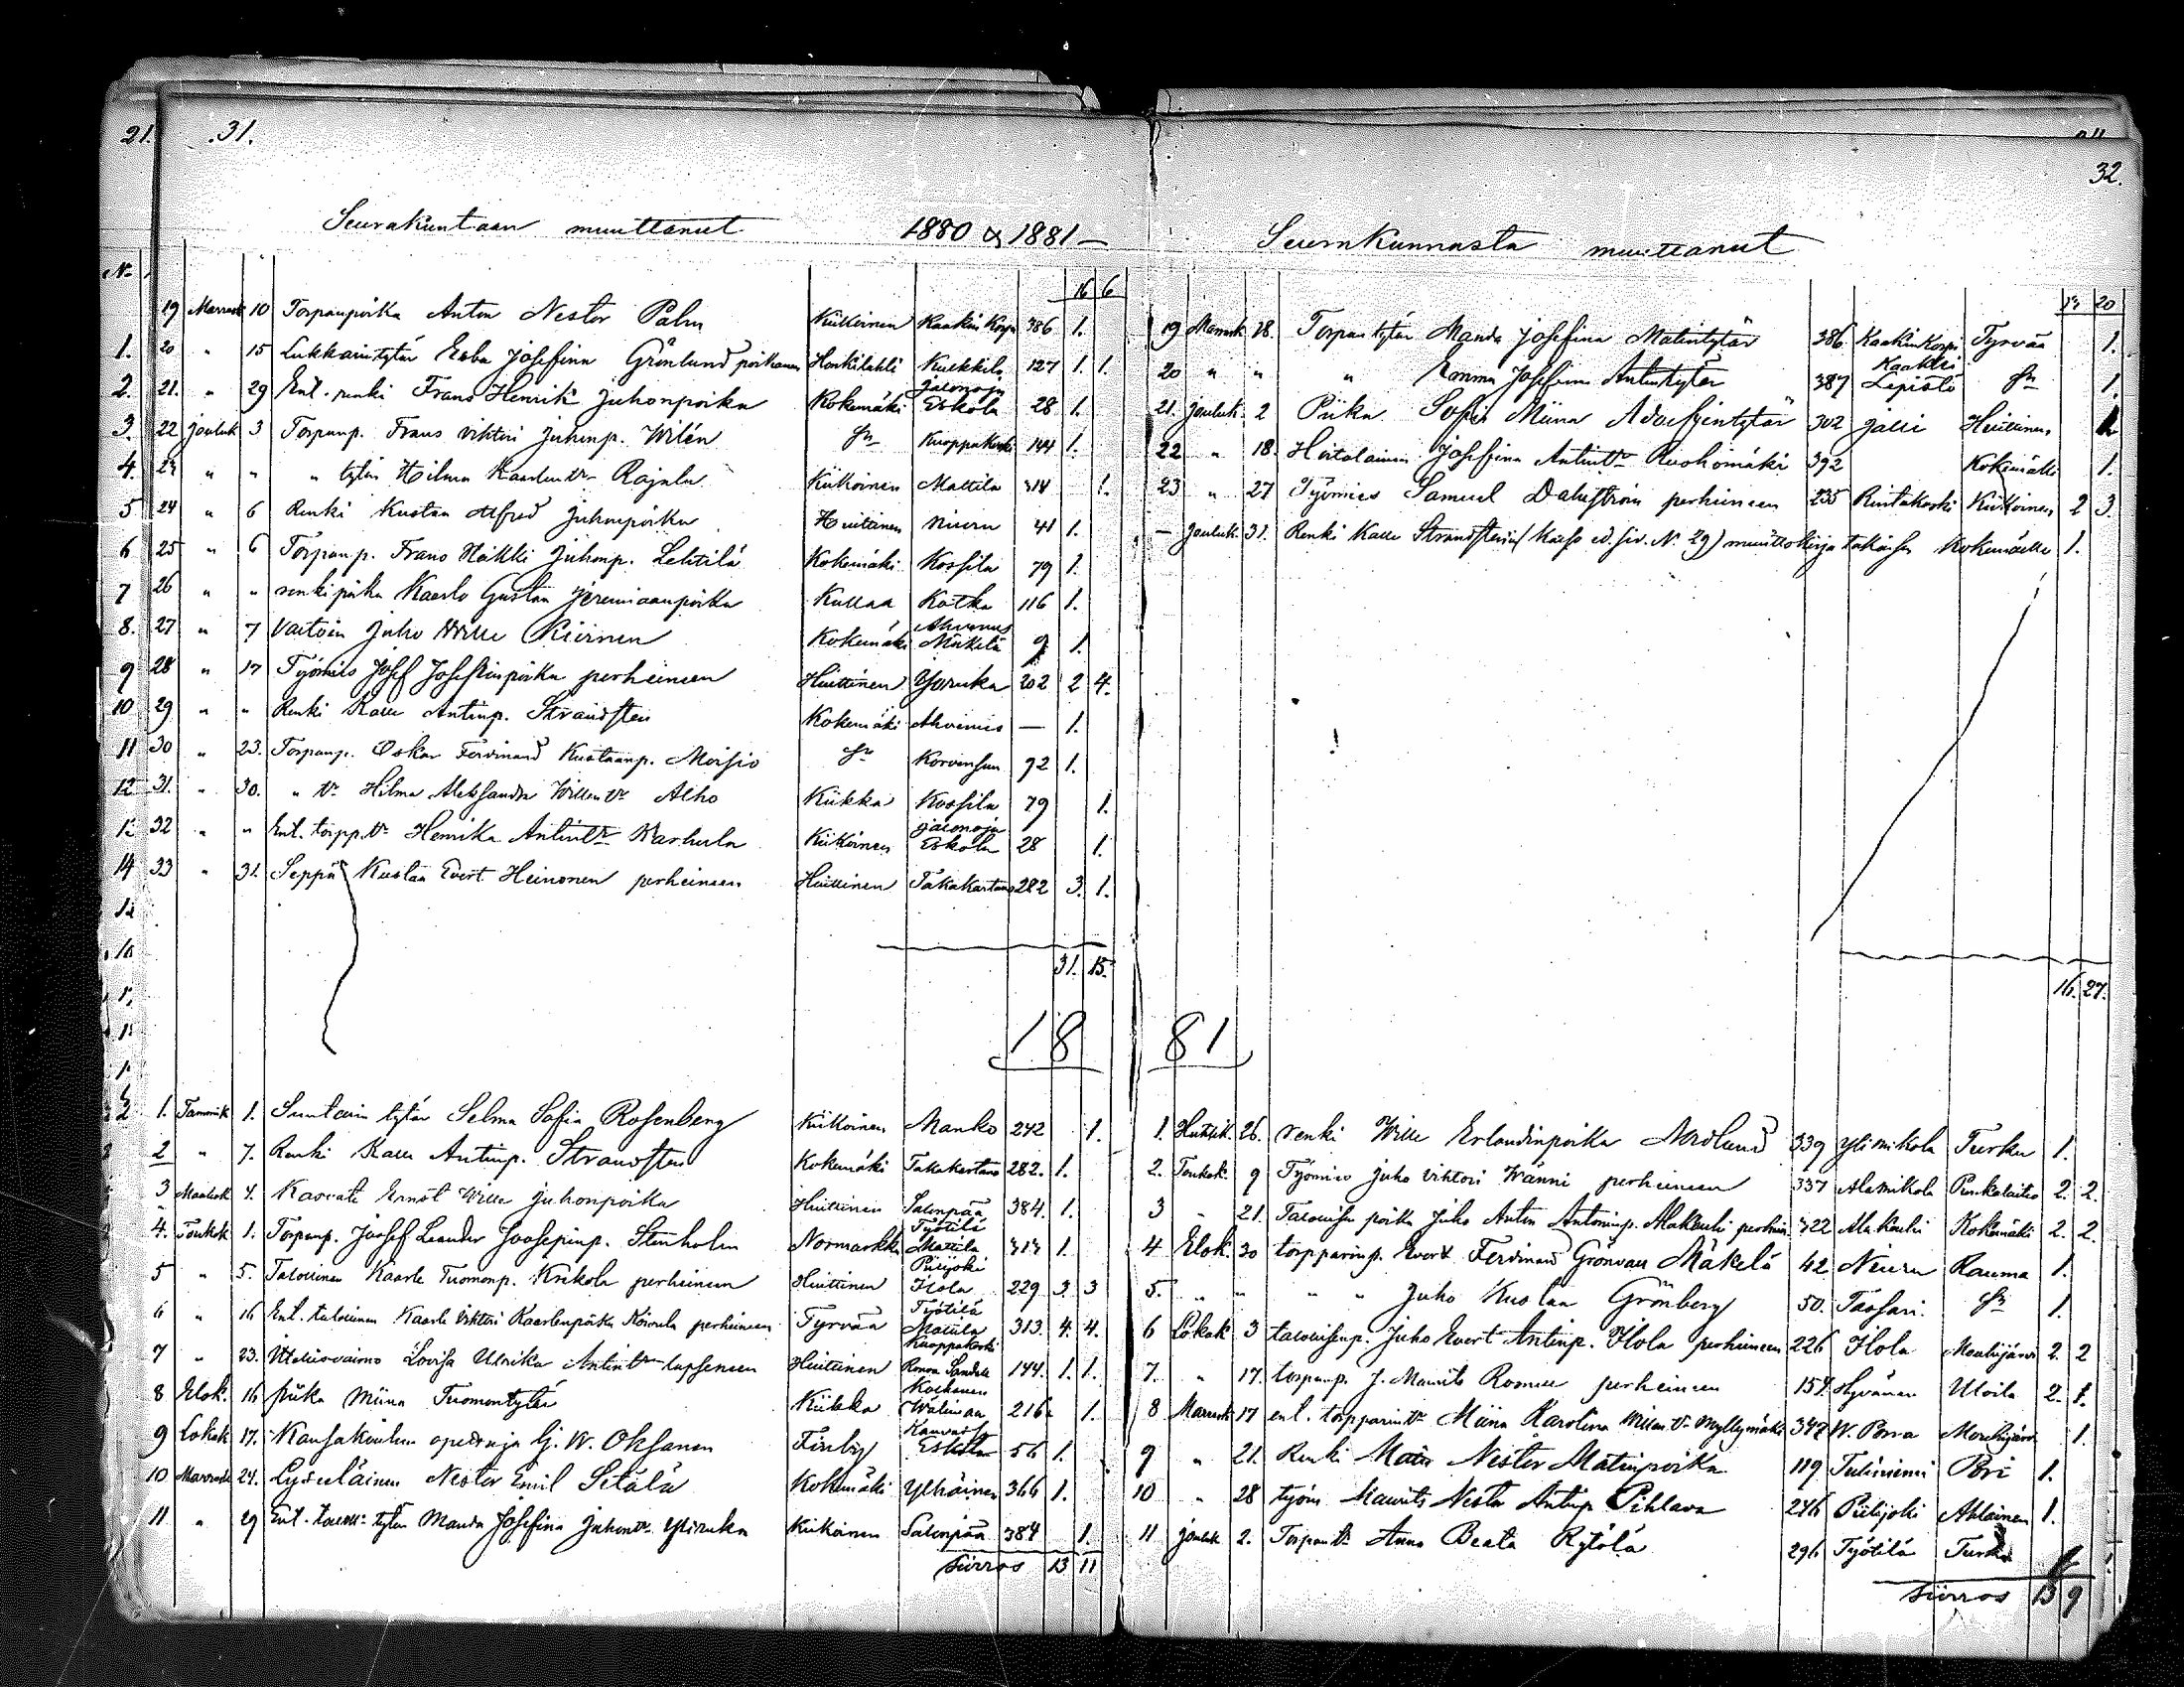 21. 31.
Seurakuntaan muuttanut 1880 & 1881 —
No
16 6
19 Marrask 10 Torpanpoika Anton Nestor Palm Kiikoinen Kaakin Korpi 386 1.
1. 20 " 15 Lukkarintytär Ebba Josefina Grönlund Honkilahti Kukkila 127 1. 1.
2. 21. " 29 Ent. renki Frans Henrik Juhonpoika Kokemäki Jalonoja Eskola 28 1.
3. 22 Jouluk 3 Torpanp. Frans Vihtori Juhonp. Wilén Sm Kuoppakoski 144 1.
4. 23 " " " tytär Hilma Kaarlentr Rajala Kiikoinen Mattila 314 1.
5 24 " 6 Renki Kustaa Alfred Juhonpoika Huittinen Nieru 41 1.
6 25 " 6 Torpanp. Frans Heikki Juhonp. Lehtilä Kokemäki Kossila 79 1.
7 26 " " renkipoika Kaarlo Gustaa Jeremiaanpoika Kullaa Kotka 116 1.
8. 27 " 7 Vaitoin Juho Wille Kiirinen Kokemäki Ahvenus Mäkelä 9 1.
9 28 " 17 Työmies Josef Josefinpoika perheineen Huittinen Yoruka 202 2 4.
10 29 " " Renki Kalle Antinp. Strandsten Kokemäki Ahvenus — 1.
11 30 " 23. Torpanp. Oskar Ferdinand Kustaanp. Moisio Sm Korvensuu 92 1.
12 31. " 30. " tr Hilma Aleksandra Willentr Alho Kiikka Kossila 79 1.
32 " " Ent. torpp.tr Henrika Antintr Karhula Kiikoinen Jalonoja Eskola 28 1.
14 33 " 31. Seppä Kustaa Evert Heinonen perheineen Huittinen Takakartano 282 3. 1.
31. 15.
18
1. Tammik 1. Suntarin tytär Selma Sofia Rosenberg Kiikoinen Manko 242 1.
2 " 7. Renki Kalle Antinp. Strandsten Kokemäki Takakartano 282. 1.
3 Maalisk 4. Kasvatti Ernst Wille Juhonpoika Huittinen Salenpää 384. 1.
4. Toukok 1. Torpanp. Joosef Leander Joosepinp. Stenholm Normarkku Työtilä Mattila 313 1.
5 " 5. Talollinen Kaarle Tuomonp. Krekola perheineen Huittinen Piilijoki Ilola 229 3. 3
6 " 16 Ent. talollinen Kaarle Vihtori Kaarlenpoika Koivula perheineen Tyrvää Työtilä Mattila 313. 4. 4.
7 " 23. Itsellisvaimo Lovisa Ulrika Antintr lapseneen Huittinen Kuoppakoski 144. 1. 1.
8 Elok. 16 piika Miina Tuomontytär Kiikka 216 1.
9 Lokak 17. Kansakoulun opettaja G. W. Oksanen Finby Eskola 56 1.
10 Marrask 24. Lyseoläinen Nestor Emil Setälä Kokemäki Ylhäinen 366 1.
11 " 29 Ent. talon tytär Manda Josefina Juhontr Kiikoinen Salenpää 384 1.
siirros 13 11
32.
Seurakunnasta muuttanut
20
19 Marrask. 28. Torpan tytär Manda Josefina Matintytär 386 Kaakin Korpi Tyrvää 1.
20 " " " Emma Josefina Antintytär 387 Kaakki Lepistö Sm 1.
21. Jouluk. 2 Piika Sofia Miina Adolfintytär 302 Jalli Huittinen 1
22 " 18. Josefina Antintr Ruohomäki 392 Kokemäki 1.
23 " 27 Työmies Samuel Dahlström perheineen 235 Rintakoski Kiikoinen 2 3.
— Jouluk. 31. Renki Kalle Strandstenin (katso ed. siv. No. 29) muuttokirja takaisin Kokemäelle 1.
16. 27.
81
1. Huhtik. 26. renki Wille Erlandinpoika Nordlund 339 Ylimikola Turku 1.
2. Toukok. 9 Työmies Juho Vihtori Wänni perheineen 337 Alamikola Punkalaitio 2. 2.
3 " 21. Talollisen poika Juho Anton Antoninp. Alakouhi perhein. 322 Alakouhi Kokemäki 2. 2.
4 Elok. 30 torpparinp. Evert Ferdinand Grönvall Mäkelä 42 Nieru Rauma 1.
5. " " " " Juho Kustaa Grönberg 50. Tassari Sm 1.
6 Lokak 3 talollisenp. Juho Evert Antinp. Ilola perheineen 226 Ilola Mouhijärvi 2. 2
7. " 17. torpanp. J. Maurits Romell perheineen 157. Hyvänen Ulvila 2. 1.
8 Marrask 17 ent. torpparintr Miina Karolina Willentr Myllymäki 347 W. Mouhijärvi 1.
9 " 21. Renki Matti Nestor Matinpoika 119 Tulinimi Pori 1.
10 " 28 työm Maurits Nestor Antinp Pihlava 246 Piilijoki Ahlainen 1.
11 Jouluk 2. Torpantr Anna Beata Rytölä 296 Työtilä Turku
siirros 13 9